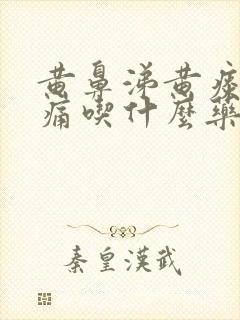 黄鼻涕黄痰
痛喫什麼藥
秦皇漢武